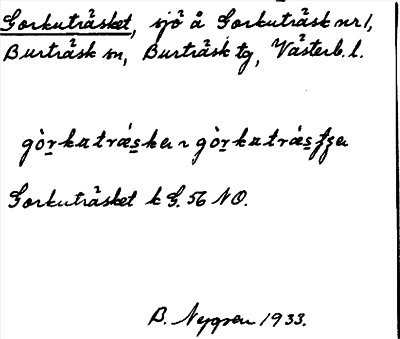 Gorkuträsket, sjö å Gorkuträsk nr 1,
Burträsk sn, Burträsk tg, Västerb. l.
gòrkatrǽska ~ gòrkatrǽsʃʒa
Gorkuträsket k G. 56 NO.
B. Nygren 1933.